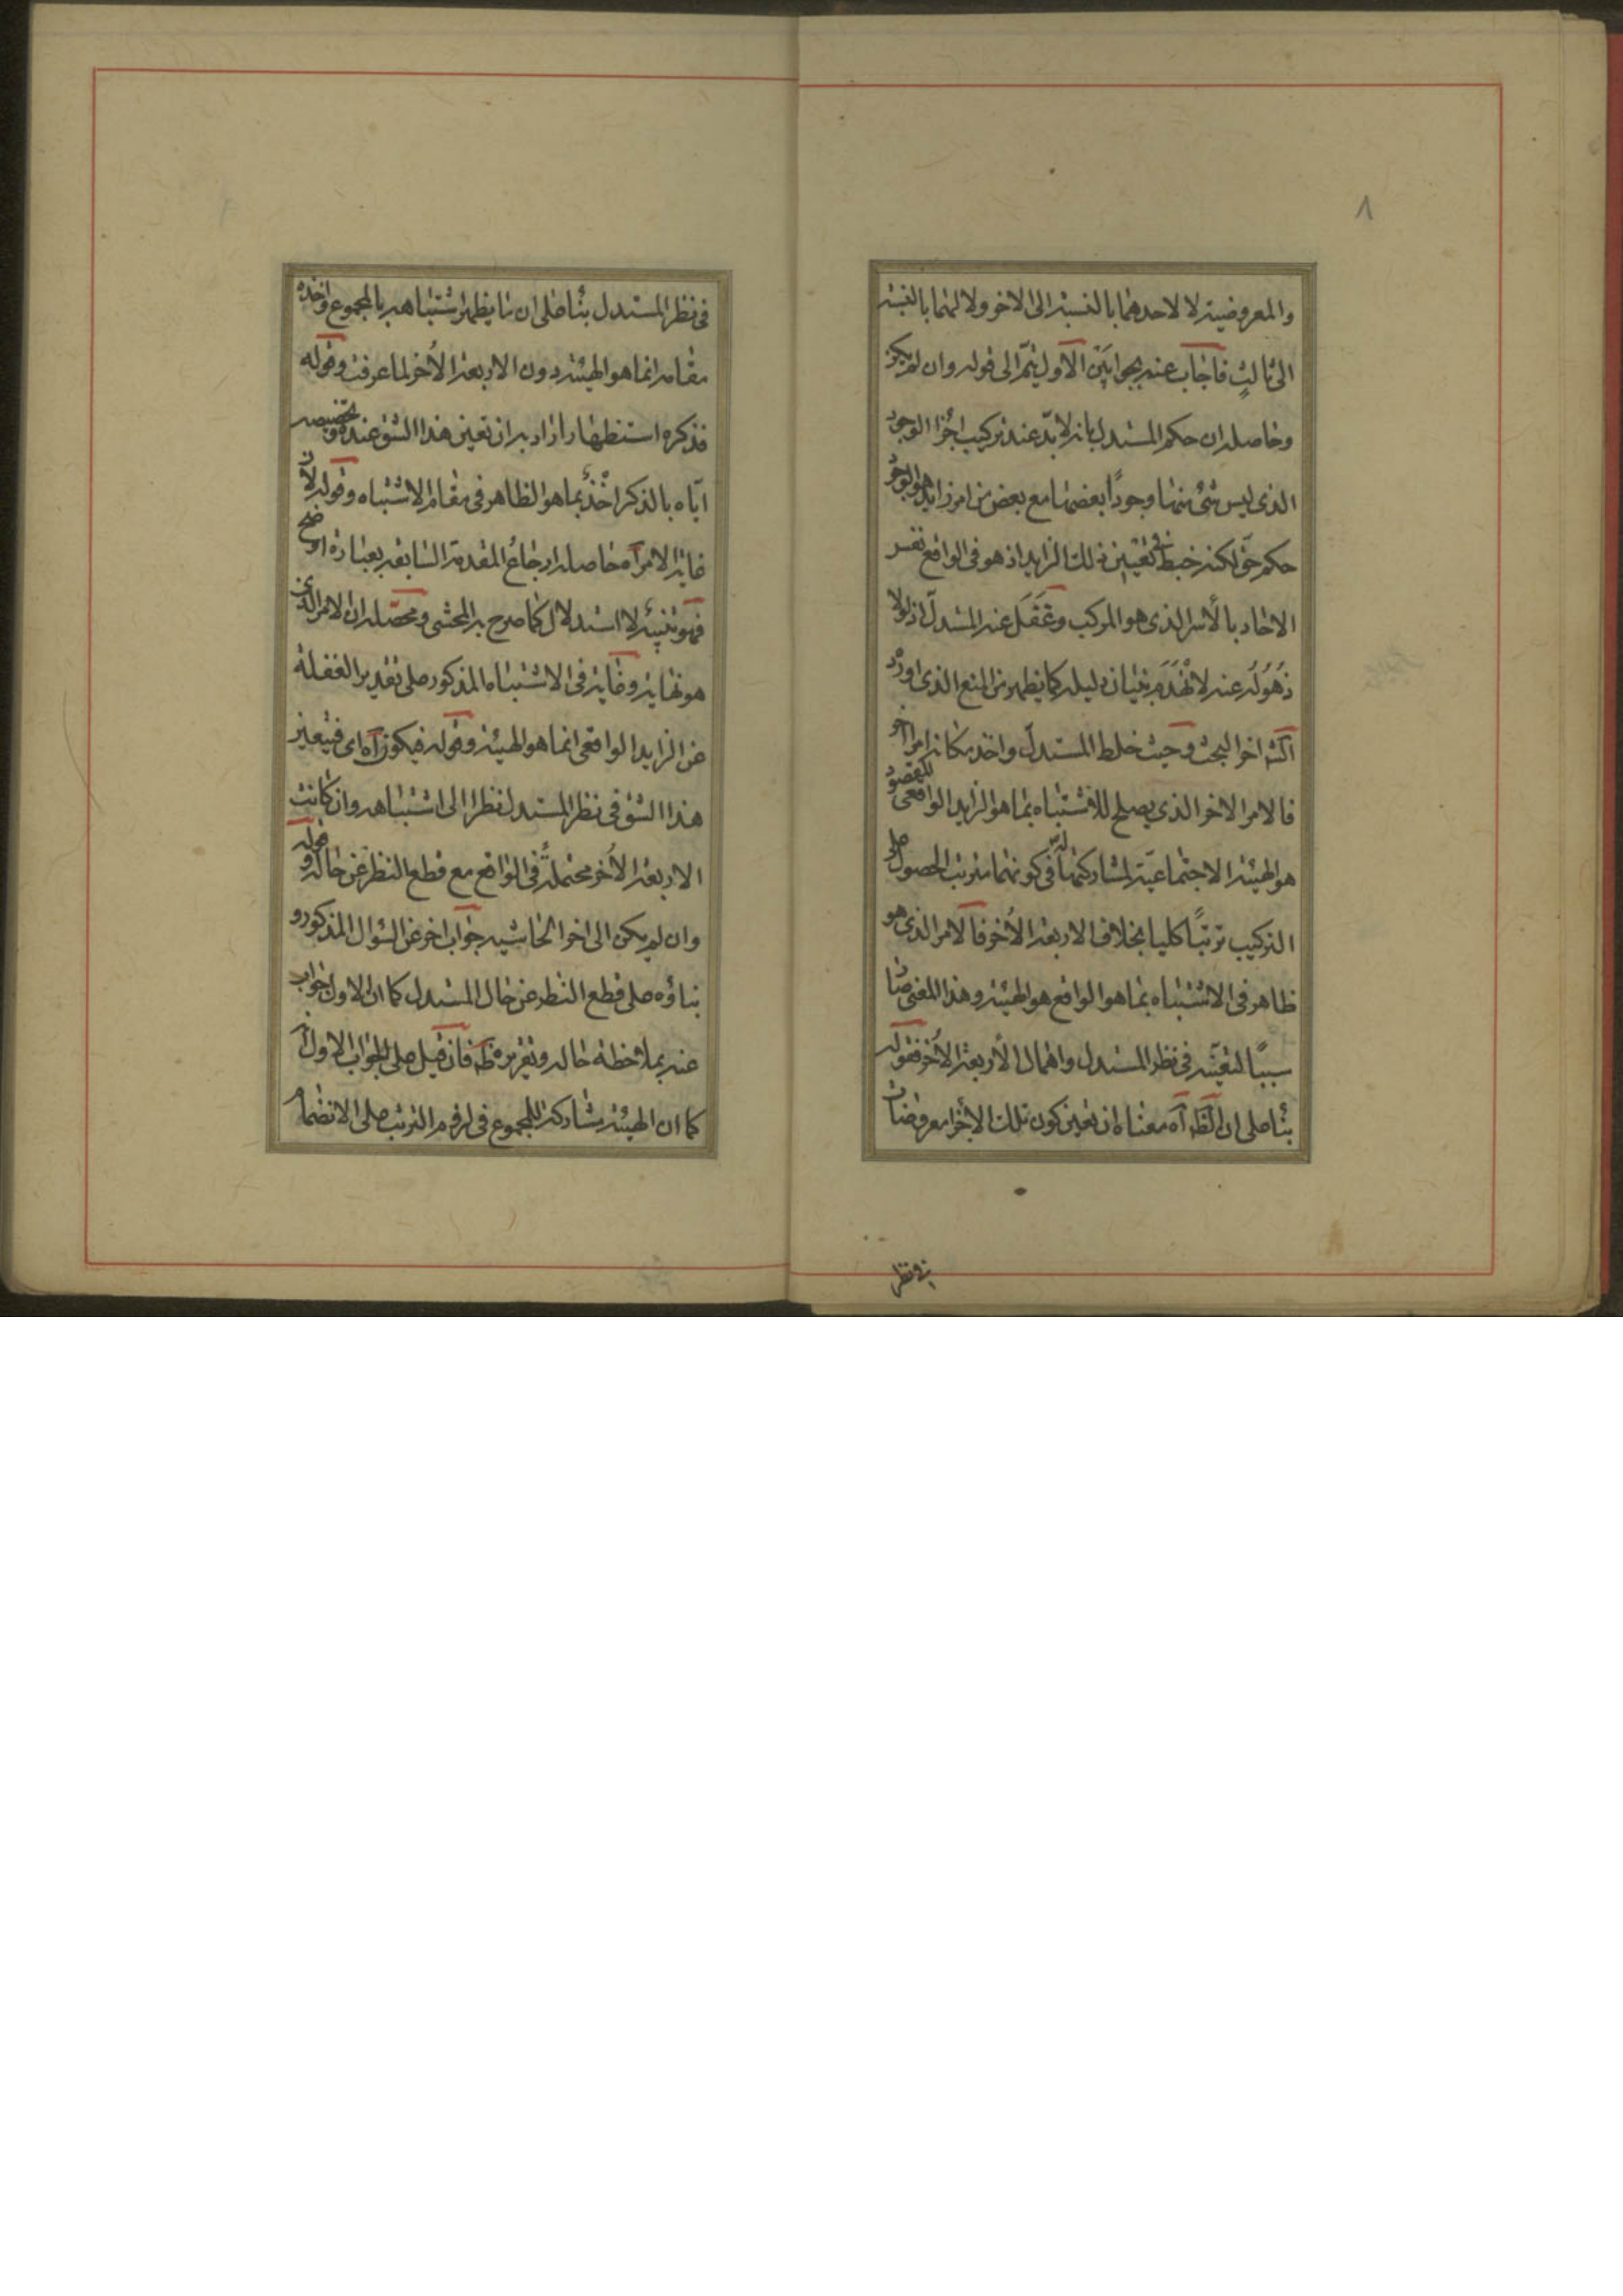 ٨
والمعروضية لا لاحدهما بالنسبة الى الاخر ولا لهما بالنسبة
الى ثالث فاجاب عنه بجوابين الاول يتم الى قوله وان لم يكن
وحاصله ان حكم المستدل بانه لا بد عند تركيب اجزا الوجود
الذى ليس شئ منها وجودًا بعضها مع بعض من امر زايد هو الوجود
حكم حق لكنه خبط فى تعيين ذلك الزايد اذ هو فى الواقع نفس
الاحاد بالأسر الذى هو المركب وغفل عنه المستدل اذ لولا
ذهوله عنه لانهدم بنيان دليله كما يظهر من المنع الذى اورد
اخر البحث وحيث خلط المستدل واخذ مكانه امرا اخر
فالامر الاخر الذى يصلح للاشتباه بما هو الزايد الواقعى المقصود
هو الهيئة الاجتماعية لمشاركتها له فى كونهما مترتب الحصول على
التركيب ترتبًا كليا بخلاف الاربعة الأخر فالامر الذى هو
ظاهر فى الاشتباه بما هو الواقع هو الهيئة وهذا المعنى صار
سببًا لتعينه فى نظر المستدل واهمال الأربعة الأخر فقوله
بنًا على ان الظ آه معناه ان تعين كون تلك الأجزا معروضات
فى نظر المستدل بنًا على ان ما يظهر اشتباهه بالمجموع واخذه
مقامه انما هو الهيئة دون الاربعة الأخر لما عرفت وقوله
فذكره استظهارا اراد به ان تعين هذا الشق عنده وتخصيصه
اياه بالذكر اخذٌ بما هو الظاهر فى مقام الاشتباه وقوله لان
غاية الامر آه حاصله ارجاع المقدمة السابقة بعبارة اوضح
فهو تنبيه لا استدلال كما صرح به المحشى ومحصله ان الامر الذى
هو نهاية وغاية فى الاشتباه المذكور على تقدير الغفلة
عن الزايد الواقعى انما هو الهيئة وقوله فيكون آه اى فيتعين
هذا الشق فى نظر المستدل نظرا الى اشتباهه وان كانت
الاربعة الأخر محتملة فى الواقع مع قطع النظر عن حاله وقوله
وان لم يكن الى اخر الحاشية جواب اخر عن السؤال المذكور و
بناؤه على قطع النظر عن حال المستدل كما ان الاول جواب
عنه بملاحظة حاله وتقريره ظه فان قيل على الجواب الاول
كما ان الهيئة مشاركة للمجموع فى لزوم الترتب على الانضمام
فى نظر